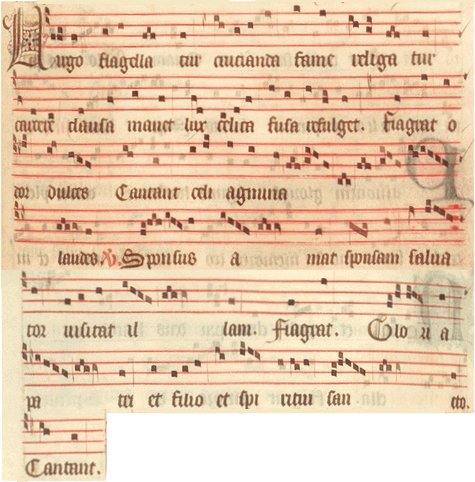 Virgo flagella tur crucianda fame religa tur
carcere clausa manet lux celica fusa refulget. Flagrat o
dor dulces Cantant celi agmina
laudes. V. Sponsus a mat sponsam salua
tor uisitat il lam. Flagrat. Glo ri a
pa tri et filio et spi ritui san cto.
Cantant.